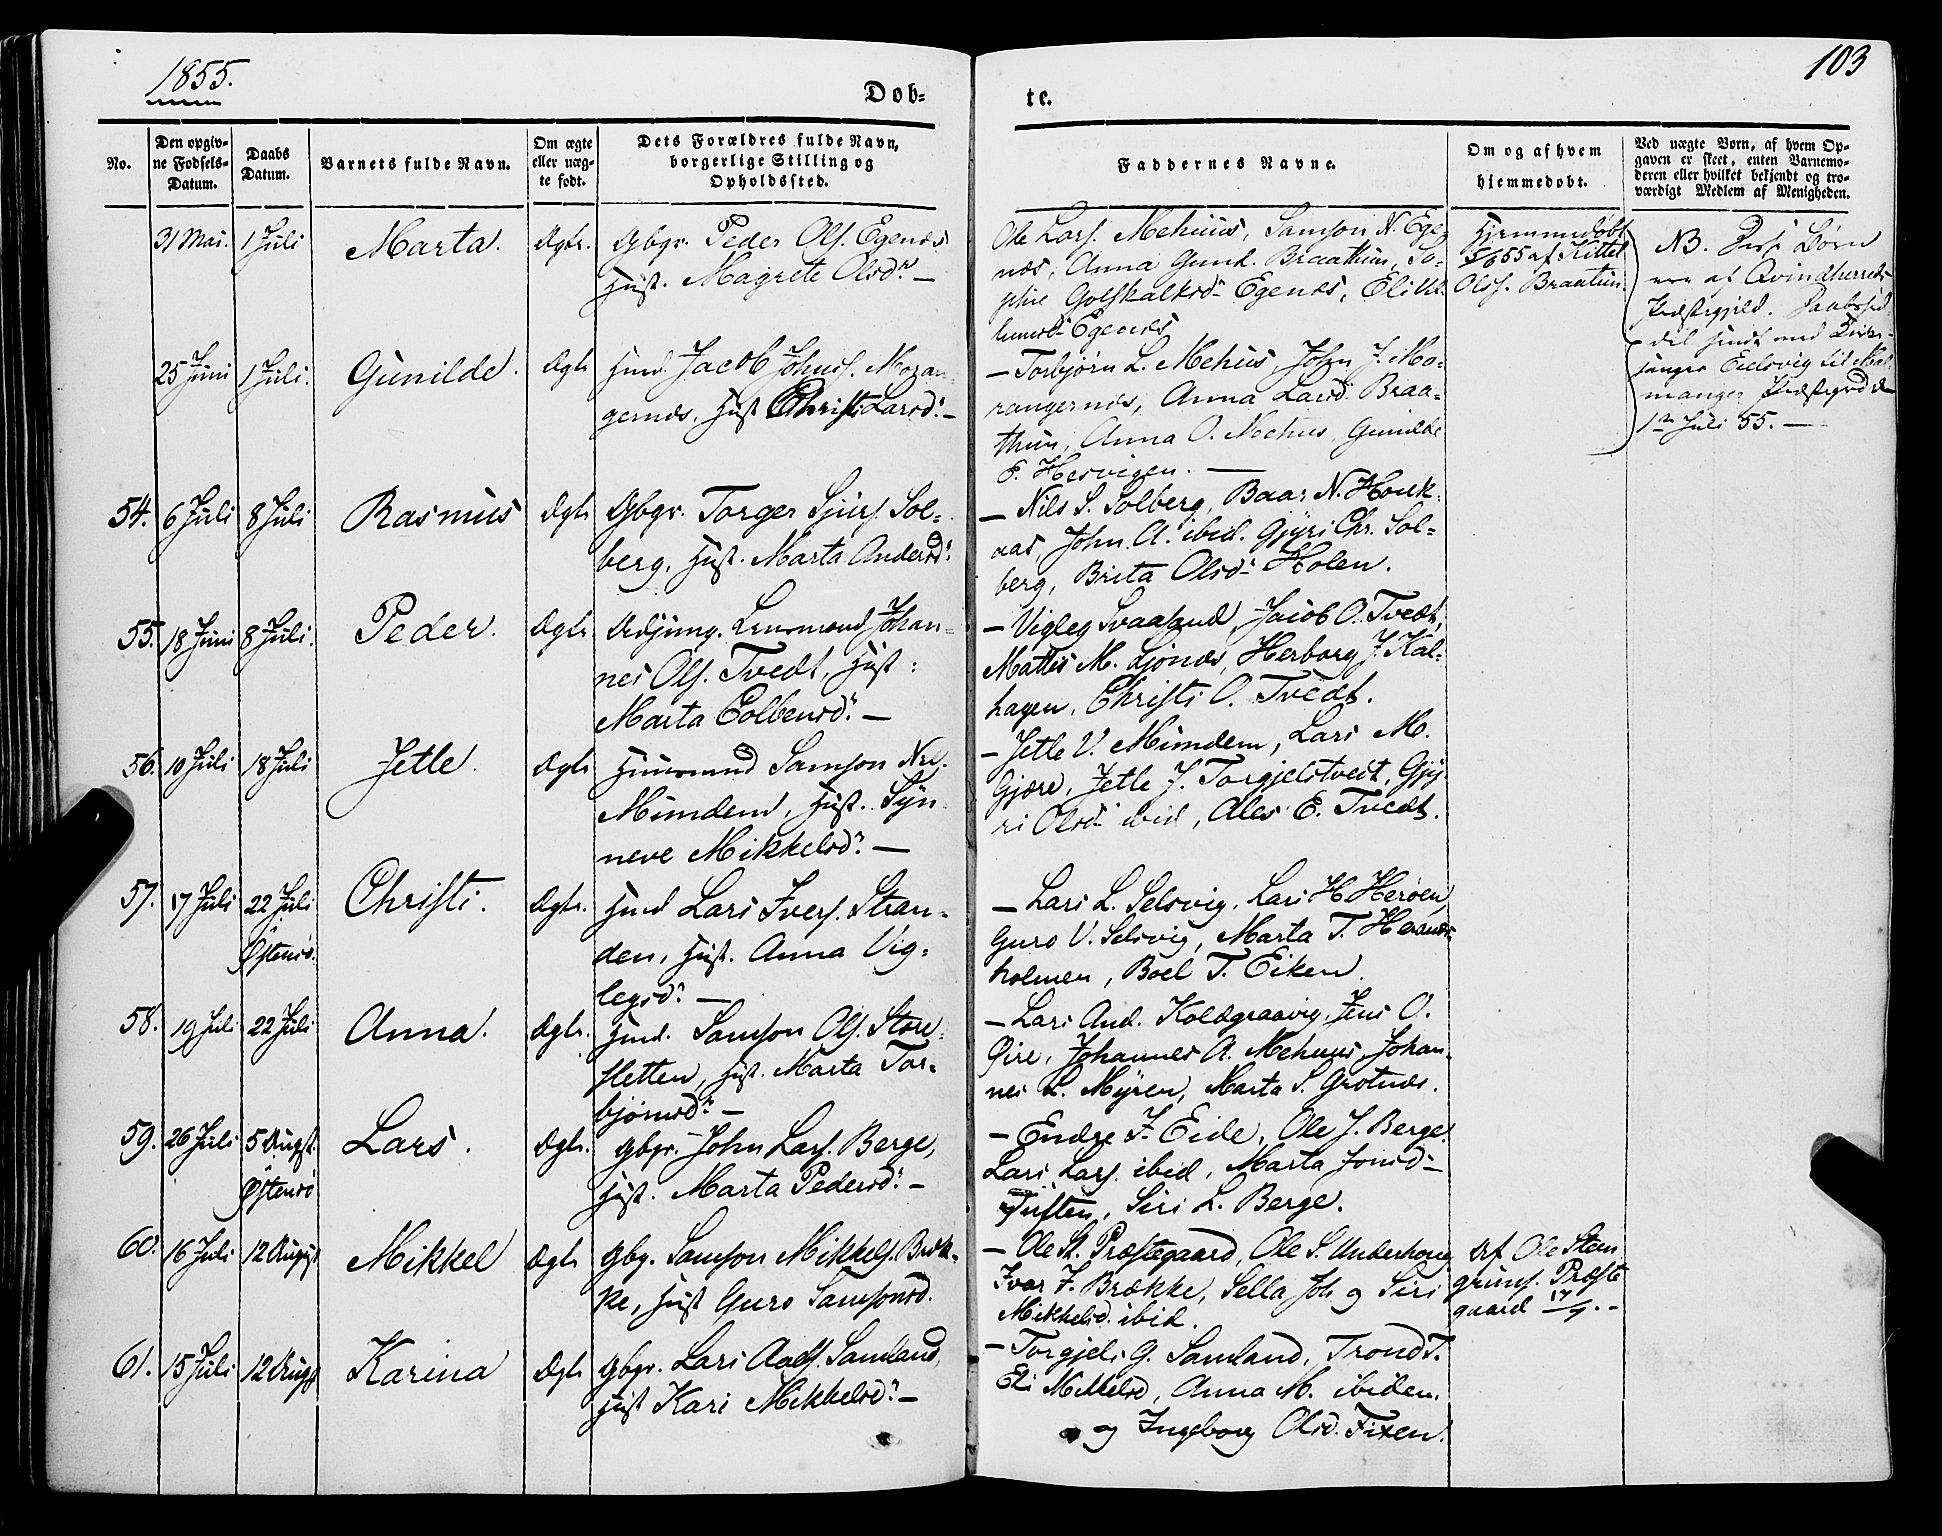 1855.
103
Døb-
te.
No.
Den opgiv-
ne Fødsels-
Datum.
Daabs
Datum.
Barnets fulde Navn.
Om ægte
eller uæg-
te født.
Dets Forældres fulde Navn,
borgerlige Stilling og
Opholdssted.
Faddernes Navne.
Om og af hvem
hjemmedøbt.
Ved uægte Børn, af hvem Op-
gaven er skeet, enten Barnemo-
deren eller hvilket bekjendt og tro-
værdigt Medlem af Menigheden.
31 Mai. 1 Juli Marta. Ægte. Gbgr. Peder Ols. Egenæs
Hust. Magrete Olsdr. —
Ole Lars. Mehuus, Samson N. Ege-
næs, Anna Gund. Braathun, So-
phie Golskalksd. Egenæs, Eli
Egenæs
Hjemmedøbt
5/6 55 af Kittel
Ols. Braatun.
NB. Disse Børn
ere af Qvindherreds
Præstegjeld. Daabssed-
del sendt med Kirke-
sanger Eidsvig til Mal-
manger Præstegrd d.
1ste Juli 55. —
25 Juni 1 Juli. Gunilde. Ægte Hmd. Jacob Johns. Moran-
gernæs, Hust Christi Larsd. —
— Torbjørn L. Mehus, John J. Mo-
rangernæs, Anna Larsd. Braa-
thun, Anna O. Mehus, Gunilde
E. Hesvigen. —
54. 6 Juli 8 Juli Rasmus Ægte Gbgr. Torger Sjurs. Sol-
berg, Hust. Marta Andersd.
— Nils S. Solberg, Baar N. Houk-
aas, John A. ibid. Gjyri Chr. Sol-
berg, Brita Olsd. Holen.
55. 18 Juni 8 Juli. Peder. Ægte Adjung. Lensmand Johan-
nes Ols. Tvedt, Hust:
Marta Colbensd. —
— Vigleg Svaasand, Jacob O. Tvedt,
Mattis M. Ljonæs, Herborg J. Kal-
hagen, Christi O. Tvedt.
56. 10 Juli 18 Juli Jetle. Ægte Huusmand Samson Nils.
Mundem, Hust. Syn-
neve Mikkelsd. —
— Jetle V. Mundem, Lars M.
Gjøre, Jetle J. Torgjelstveit, Gjy-
ri Olsd. ibid, Ales E. Tvedt.
57. 17 Juli 22 Juli Christi. Ægte. Hmd Lars Ivers. Stran-
Østensø.
den, Hust. Anna Vig-
legsd. —
— Lars L. Selsvig, Lars H Herøen,
Guro V. Selsvig, Marta T. Herands-
holmen, Boel T. Eiken.
58. 19 Juli 22 Juli Anna. Ægte. Hmd. Samson Ols. Store-
fletten, Hust. Marta Tor-
bjørnsd. —
— Lars And. Koldgraavig, Jens O.
Øire, Johannes A. Mehuus, Johan-
nes L. Myren, Marta S. Grotnæs.
59. 26 Juli 5 Augst. Lars. Ægte. Gbgr. John Lars. Berge,
Østensø
Hust. Marta Pedersd. —
— Endre J. Eide, Ole J. Berge.
Lars Lars. ibid, Marta Jonsd.
Tuften, Siri L. Berge.
60. 16 Juli 12 Augst Mikkel Ægte Gbg. Samson Mikkels. Bræk-
ke, Hust Guro Samsonsd.
— Ole St. Præstegaard, Ole S. Underhoug
Ivar J. Brække, Sella Joh og Siri
Mikkelsd. ibid.
Af Ole Sten
grims. Præste
gaard 17/7. —
61. 15 Juli 12 Augst Karina Ægte Gbgr. Lars Aads. Samland,
Hust Kari Mikkelsd. —
— Torgjels G. Samland, Trond T.
Eli Mikkelsd, Anna M. ibidem.
og Ingeborg Olsd. Fixen.